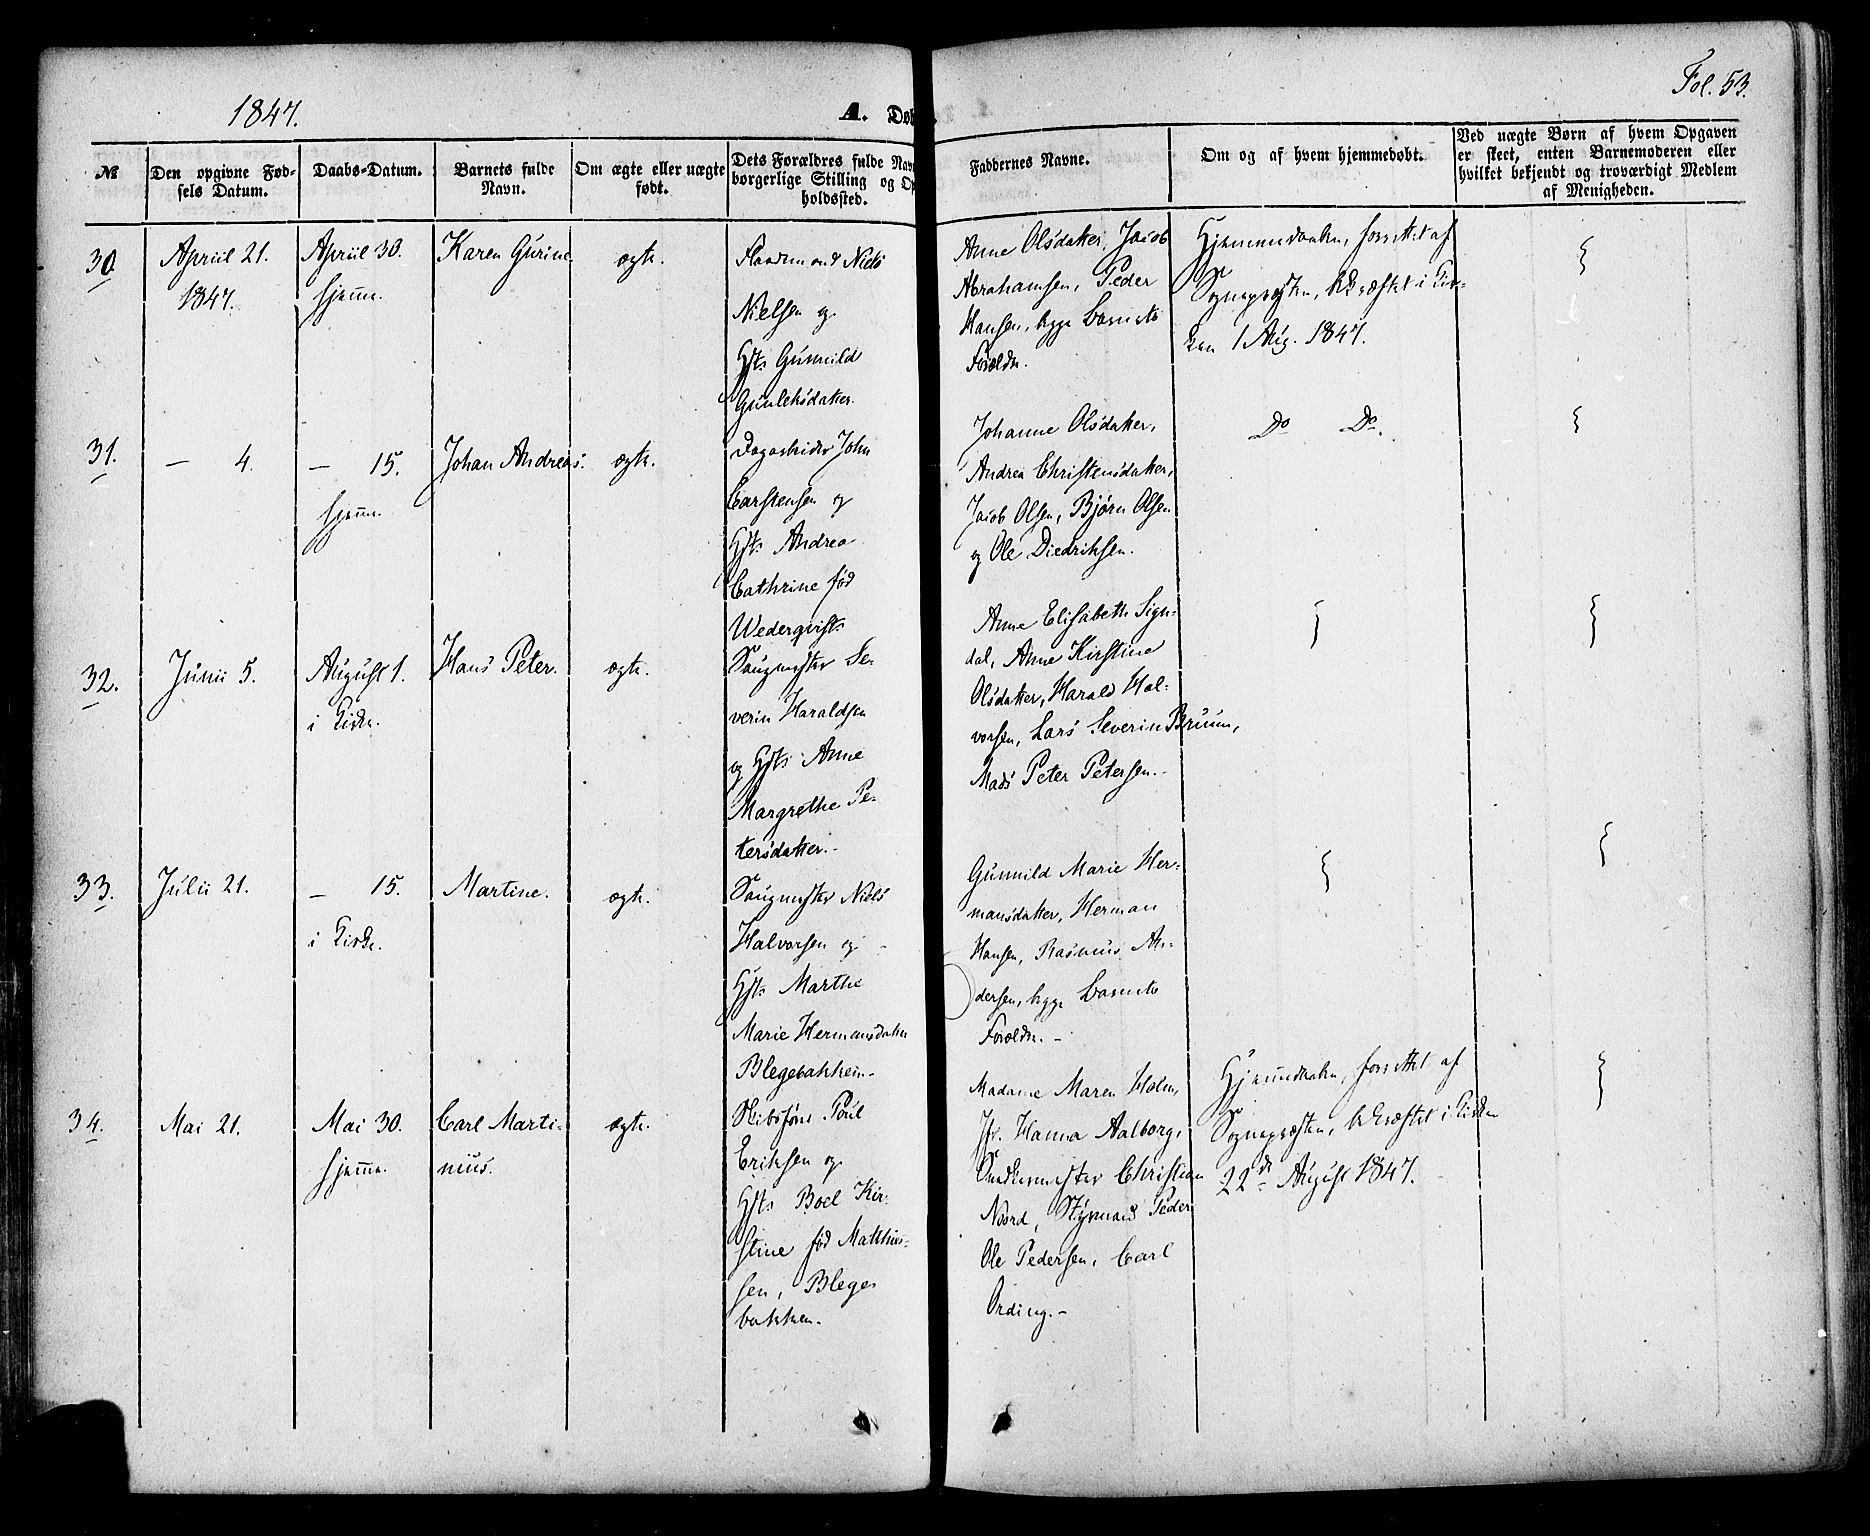 1847.
A. Døb
Fol. 53.
№
Den opgivne Fød-
sels Datum.
Daabs-Datum.
Barnets fulde
Navn.
Om ægte eller uægte
født.
Dets Forældres fulde Nav
borgerlige Stilling og Op
holdssted.
Faddernes Navne.
Om og af hvem hjemmedøbt.
Ved uægte Børn af hvem Opgaven
er skeet, enten Barnemoderen eller
hvilket bekjendt og troværdigt Medlem
af Menigheden.
30.
Apriil 21.
1847.
Apriil 30.
hjeme.
Karen Gurine
ægte.
Niels
Nielsen og
Hst: Gunnild
Gunleksdatter.
Anne Olsdatter, Jacob
Abrahamsen, Peder
Hansen, begge Barnets
Forældre.
Hjemmedaaben, forrettet af
Sognepræsten, bekræftet i Kir-
ken 1 Aug. 1847.
31.
— 4.
— 15.
hjeme.
Johan Andreas.
ægte.
Dagarbeider John
Carstensen og
Hst: Andrea
Cathrine fød
Wederqvist
Johanne Olsdatter,
Andrea Christensdatter,
Jacob Olsen, Bjørn Olsen
og Ole Diedriksen.
Do Do.
32.
Junii 5.
August 1.
i Kirken.
Hans Peter.
ægte.
Saugmester Se-
verin Haraldsen
og Hst: Anne
Margrethe Pe-
tersdatter.-
Anne Elisabeth Sign-
dal, Anne Kirstine
Olsdatter, Harald Hal-
vorsen, Lars Severin Bruun,
Mads Peter Petersen.-
33.
Julii 21.
— 15.
i Kirken.
Martine.
ægte.
Saugmester Niels
Halvorsen og
Hst: Marthe
Marie Hermansdatter
Blegebakken-
Gunnild Marie Her-
mansdatter, Herman
Hansen, Rasmus An-
dersen, begge Barnets
Forældre.-
34.
Mai 21.
Mai 30.
hjeme.
Carl Marti-
nius.
ægte.
Skibsfører Poul
Eriksen og
Hst: Boel Kir-
stine fød Matthies-
sen, Blege-
bakken.
Madame Maren Holm,
Jfr. Hanna Aalborg,
Snedkermester Christian
Noord, Styrmand Peder
Ole Pedersen, Carl
Ording.-
Hjemmedaaben, forrettet af
Sognepræsten, bekræftet i Kirken
22de August 1847.